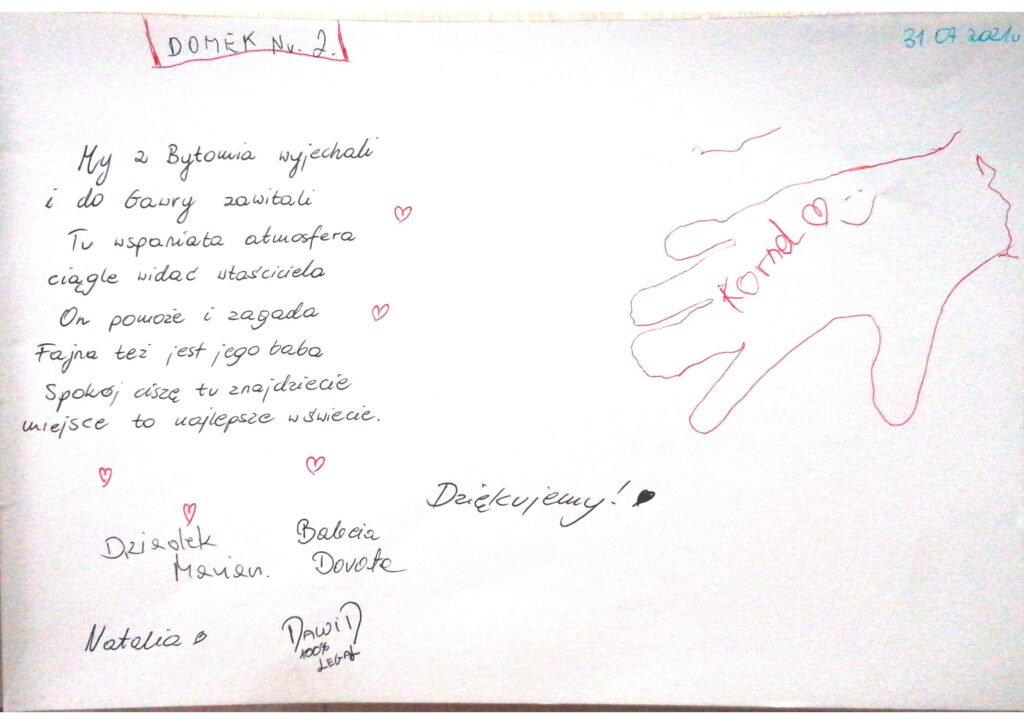 DOMEK Nr. 2.
31.07.2021r
My z Bytomia wyjechali
i do Gawry zawitali
Tu wspaniała atmosfera
ciągle widać właściciela
On pomoże i zagada
Fajna też jest jego baba
Spokój ciszę tu znajdziecie
miejsce to najlepsze w świecie.
Kornel
Dziękujemy!
Dziadek
Marian.
Babcia
Dorota
Natalia
DAWID
100%
LEGAL